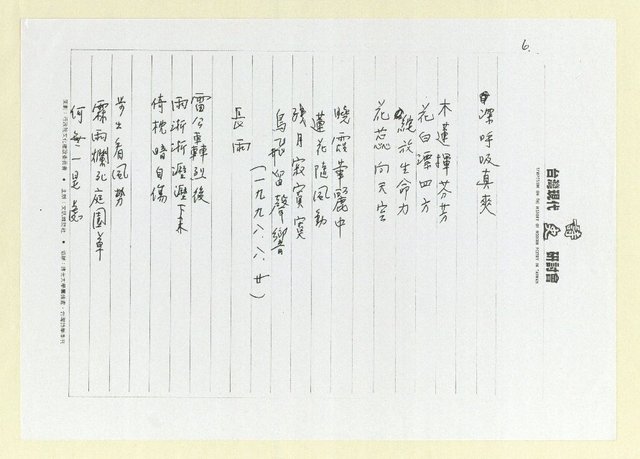 6.
台灣現代詩史研討會
深呼吸真爽
木蓮揮芬芳
花白漂四方
綻放生命力
花蕊向天空
曉霞華麗中
蓮花隨風動
殘月寂寞寞
鳥飛留聲響
(一九九八、八、廿)
長雨
雷公轟烈後
雨淅淅瀝瀝下來
倚枕暗自傷
步出看風勢
霖雨爛死庭園草
何每一晃